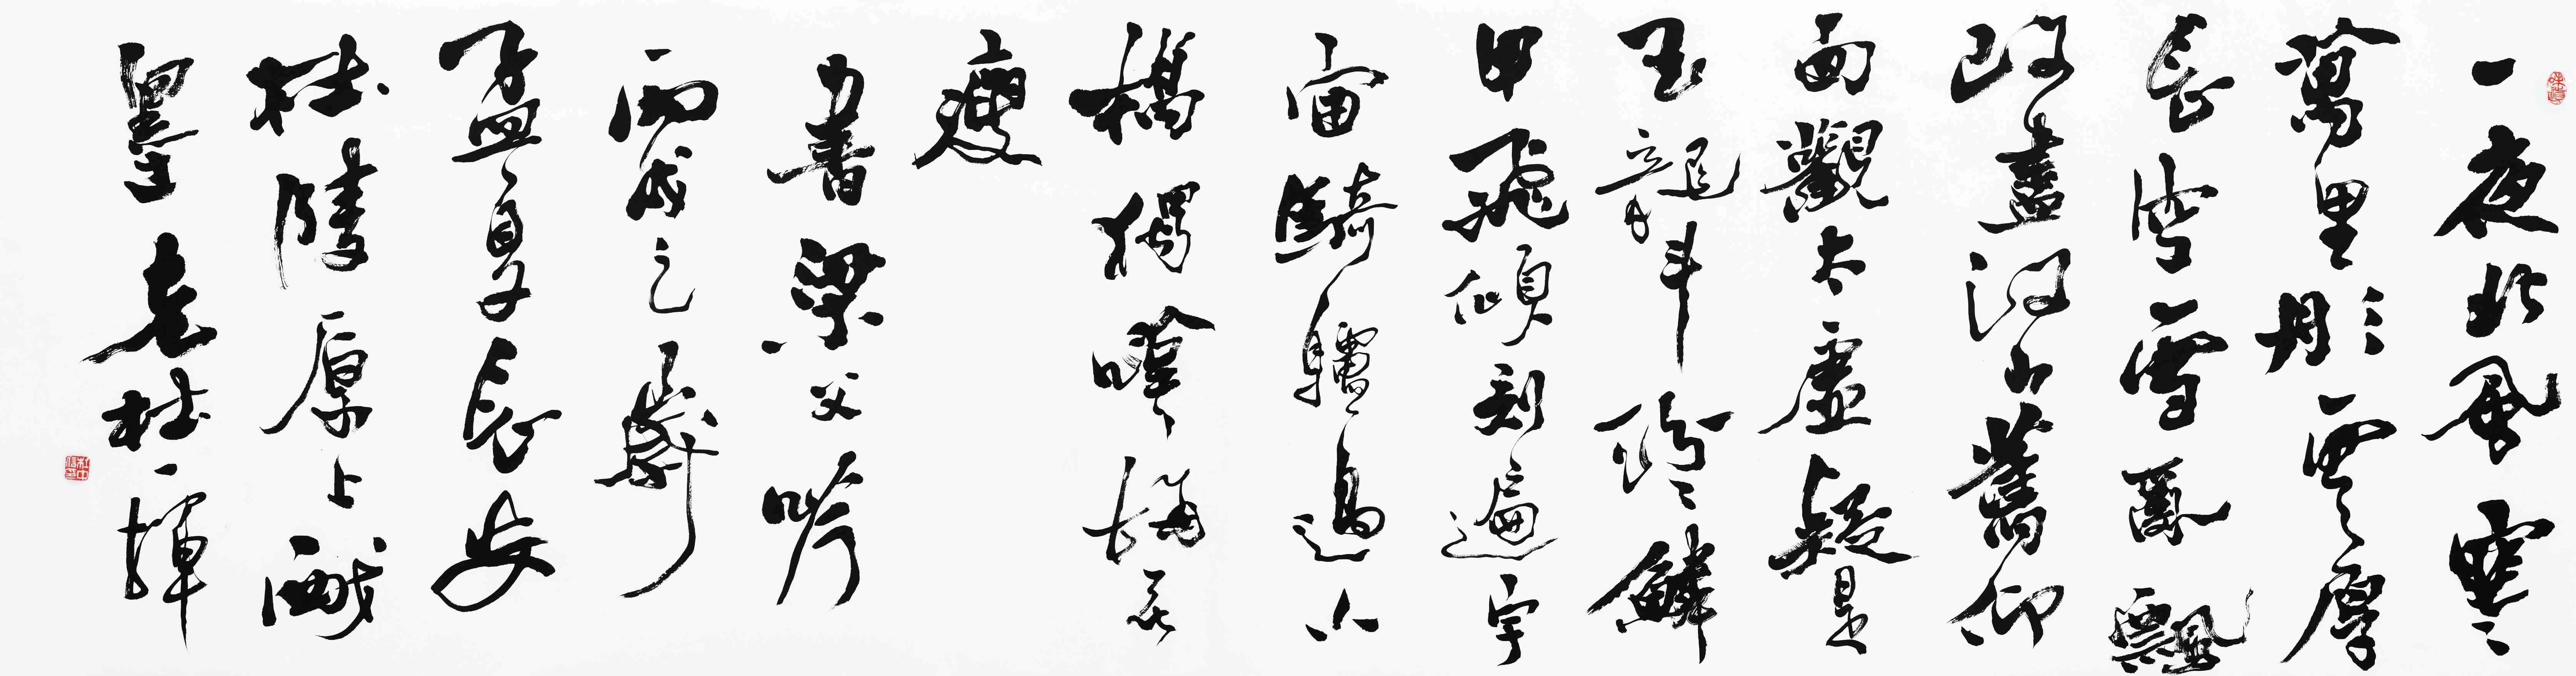 一夜北風寒
萬里彤雲厚
長空雪亂飄
改盡江山舊仰
面觀太虛疑是
玉龍斗紛紛鱗
甲飛頃刻遍宇
宙騎驢過小
橋獨嘆梅花
瘦
書梁父吟
丙戌之歲
孟夏長安
杜陵原上酣
墨老杜一揮